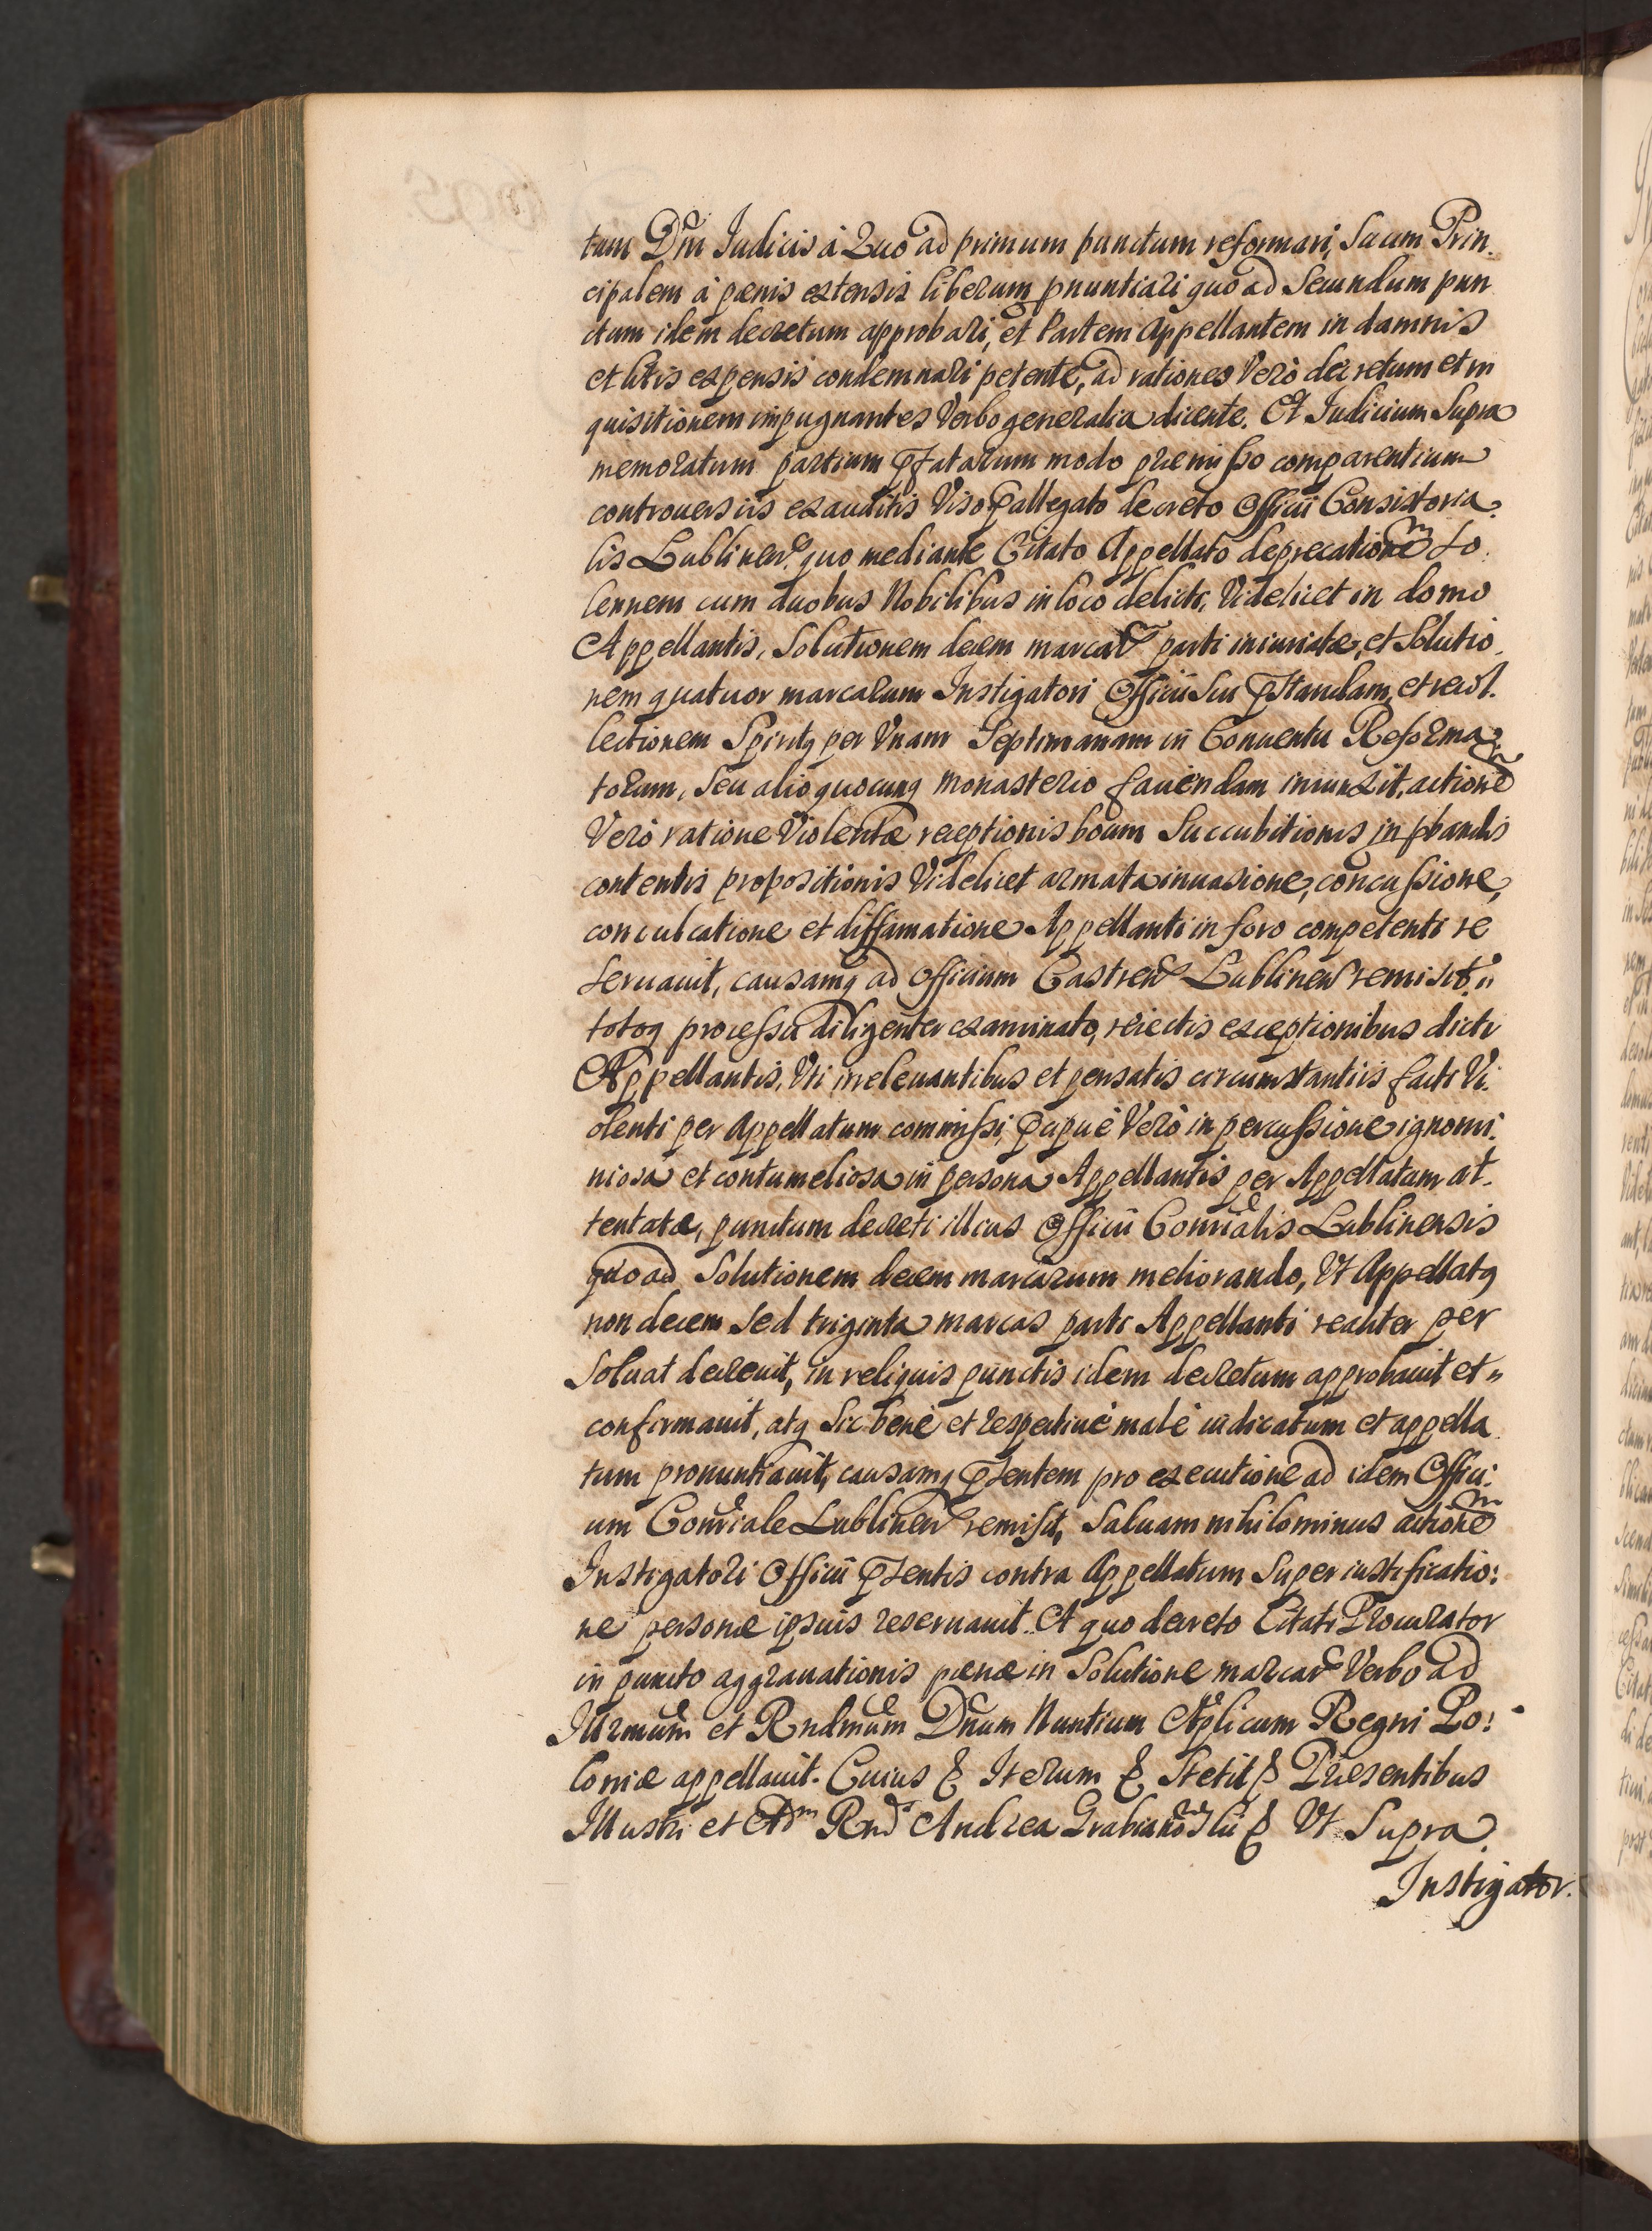 tum Dni Iudicis à Quo ad primum punctum reformari, Suum Prin-
cipalem à pœnis extensis liberum pnuntiari quo ad Secundum pun
ctum idem decretum approbari, et Partem Appellantem in damnis
et litis expensis condemnari petente, ad rationes Verò decretum et in
quisitionem impugnantes Verbo generalia dicente. Et Iudicium Supra
memoratum partium pfatarum modo præmisso comparentium
controuersiis exauditis Viso pallegato decreto Officii Consistoria-
lis Lublinen. quo mediante Citato Appellato deprecationem so-
lennem cum duobus Nobilibus in loco delicti, Videlicet in domo
Appellantis, Solutionem decem marcar parti iniuriatæ, et Solutio-
nem quatuor marcarum Instigatori Officii Sui pstandam, et recol-
lectionem Spiritq per Vnam Septimanam in Conuentu Reforma-
torum, Seu alio quocunq monasterio faciendam iniunxit, actionem
Verò ratione Violentæ receptionis boum Succubitionis in pbandis
contentis propositionis Videlicet armata inuasione, concussione,
conculcatione et diffamatione Appellanti in foro competenti re
seruauit, causamq ad Officium Castren Lublinen remisit,
totoq processu diligenter examinato, reiectis exceptionibus dicti
Appellantis, Vti irreleuantibus et pensatis circumstantiis facti Vi-
olenti per Appellatum commissi, pcipuè Verò in percussione ignomi-
niosa et contumeliosa in persona Appellantis per Appellatum at-
tentatæ, punctum decreti illius Officii Connalis Lublinensis
quo ad Solutionem decem marcarum meliorando, Vt Appellatq
non decem Sed triginta marcas parti Appellanti realiter per
Soluat decreuit, in reliquis punctis idem decretum approbauit et
confirmauit, atq Sic benè et respectiuè malè iudicatum et appella
tum pronuntiauit, causamq psentem pro executione ad idem Offici-
um Connale Lublinen remisit, Saluam nihilominus actionem
Instigatori Officii psentis contra Appellatum Super iustificatio-
ne personæ ipsius reseruauit. A quo decreto Citati Procurator
in puncto aggrauationis pœnæ in Solutione marcar Verbo ad
Illrmum et Rndmum Dnum Nuntium Aplicum Regni Po-
loniæ appellauit. Cuius & Iterum & Stetit & Præsentibus
Illustri et Adm Rnd Andrea Grabianoski & Vt Supra.
Instigator.